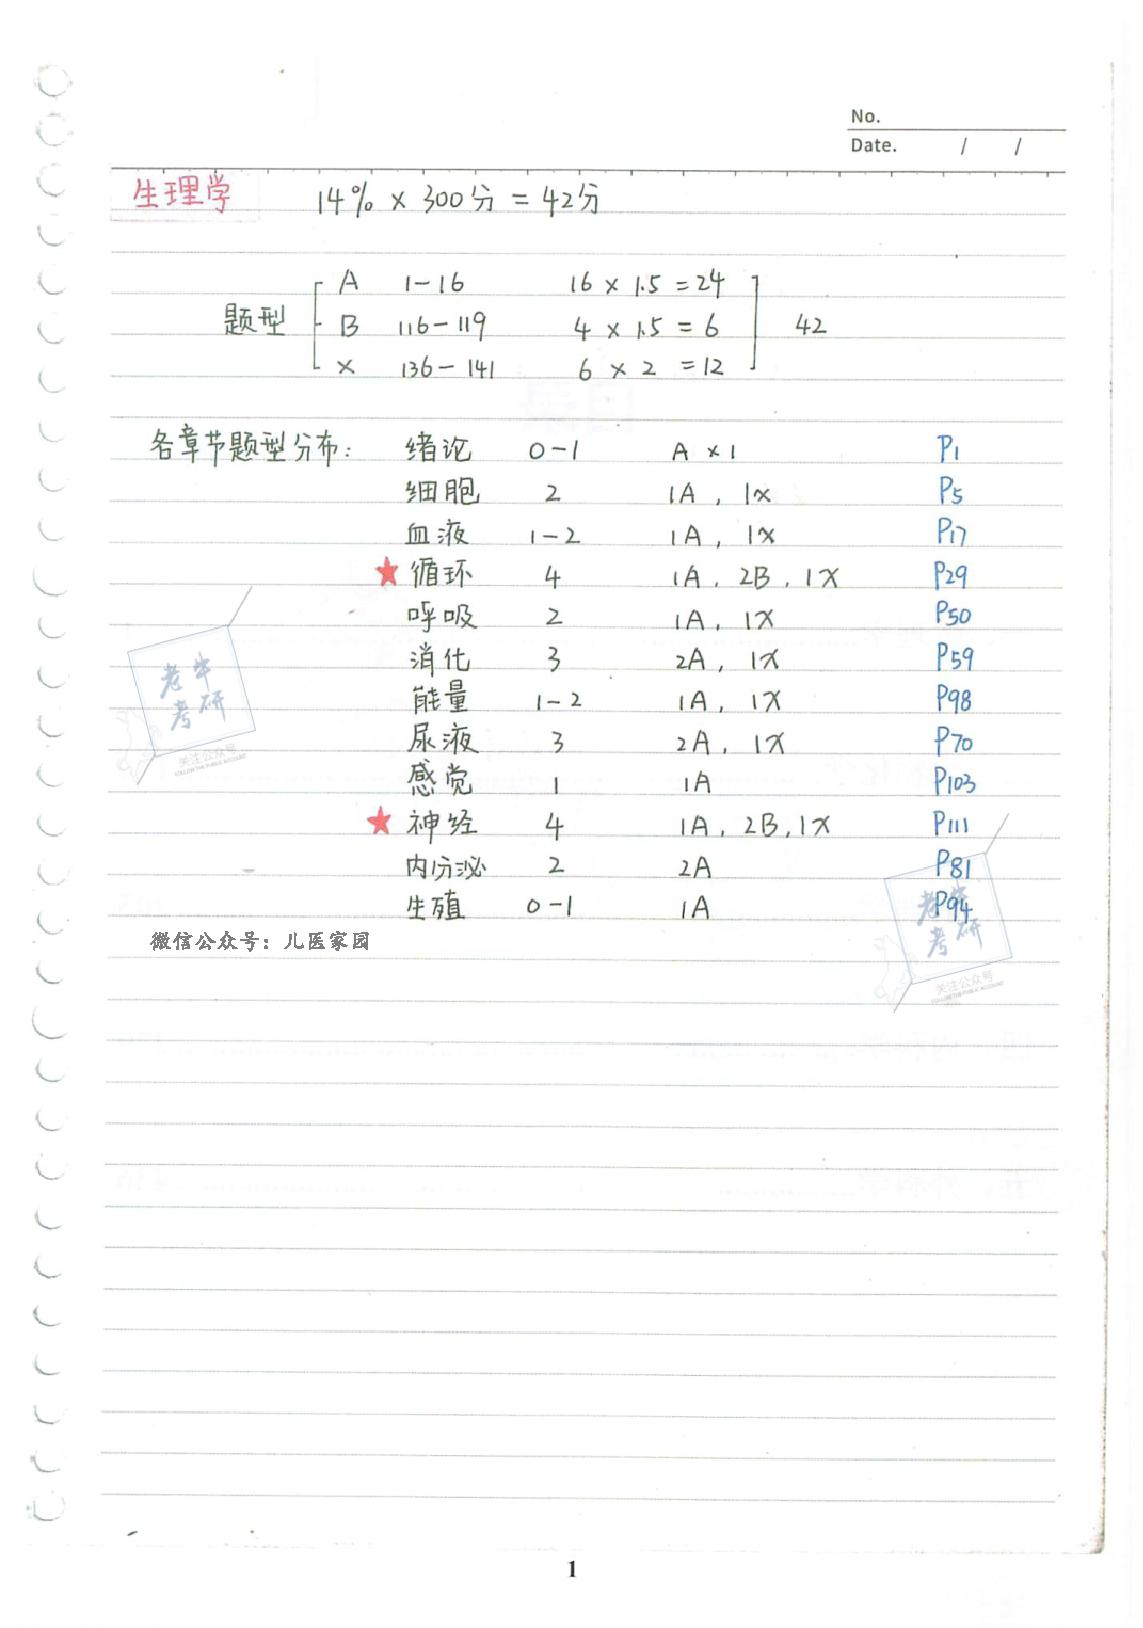 No.
Date. / /
生理学 14% × 300分 = 42分
A 1-16 16 × 1.5 = 24
题型 B 116-119 4 × 1.5 = 6 42
X 136-141 6 × 2 = 12
各章节题型分布: 绪论 0-1 A × 1 P1
细胞 2 1A, 1X P5
血液 1-2 1A, 1X P17
★循环 4 1A, 2B, 1X P29
呼吸 2 1A, 1X P50
消化 3 2A, 1X P59
能量 1-2 1A, 1X P98
尿液 3 2A, 1X P70
感觉 1 1A P103
★神经 4 1A, 2B, 1X P111
内分泌 2 2A P81
生殖 0-1 1A P94
微信公众号：儿医家园
老牛
考研
关注公众号
FOLLOW THE PUBLIC ACCOUNT
老牛
考研
关注公众号
FOLLOW THE PUBLIC ACCOUNT
1